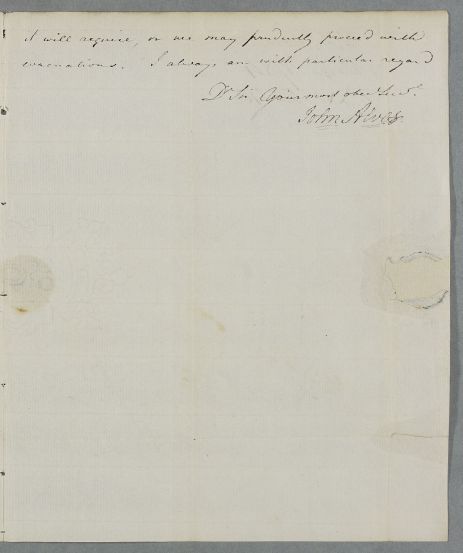 it will require, or we may prudently proceed with
evacuations. I always am with particular regard
Dr Sir Your most obed Servt
John Alves